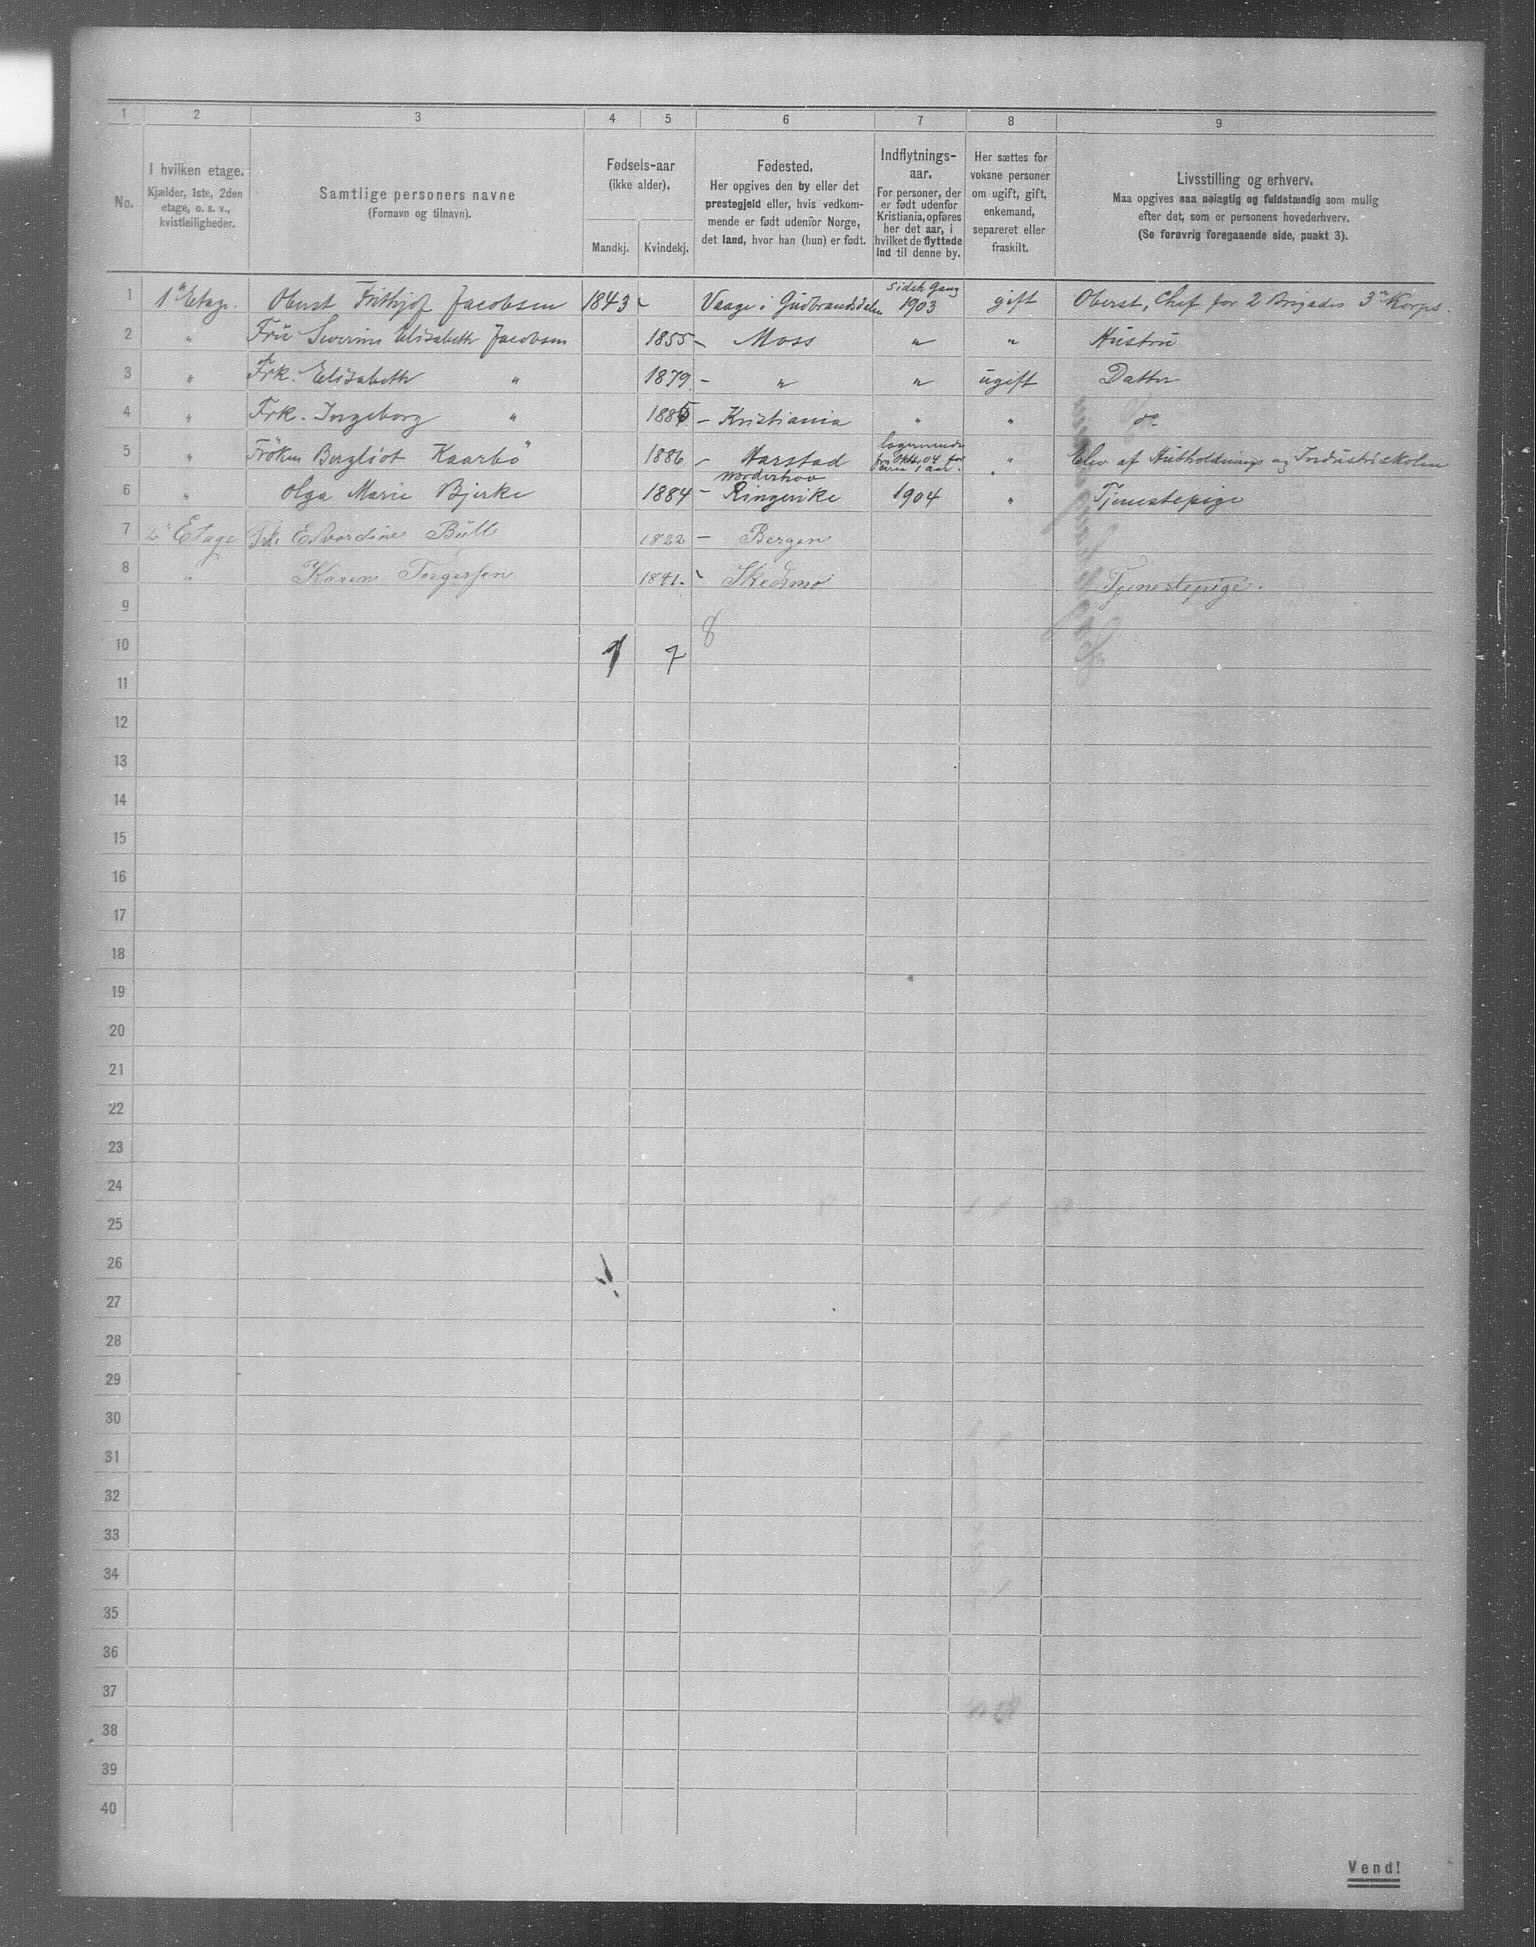 1 2 3 4 5 6 7 8 9
No.
I hvilken etage.
Kjælder, 1ste, 2den
etage, o. s. v.,
kvistleiligheder.
Samtlige personers navne
(Fornavn og tilnavn).
Fødsels-aar
(ikke alder).
Mandkj. Kvindekj.
Fødested.
Her opgives den by eller det
prestegjeld eller, hvis vedkom-
mende er født udenfor Norge,
det land, hvor han (hun) er født.
Indflytnings-
aar.
For personer, der
er født udenfor
Kristiania, opføres
her det aar, i
hvilket de flyttede
ind til denne by.
Her sættes for
voksne personer
om ugift, gift,
enkemand,
separeret eller
fraskilt.
Livsstilling og erhverv.
Maa opgives saa nøiagtig og fuldstændig som mulig
efter det, som er personens hovederhverv.
(Se forøvrig foregaaende side, punkt 3).
1 1ª Etage. Oberst Frithjof Jacobsen 1843 - Vaage i Gudbrandsdalen sidste Gang 1903 gift Oberst, Chef for 2 Brigades 3ª Korps.
2 " Frü Severine Elisabeth Jacobsen 1855 - Moss " " Hüstrü
3 " Frk. Elisabeth " 1879 - " " ugift Datter
4 " Frk. Ingeborg " 1885 - Kristiania " " do
5 " Fröken Bergliot Kaarbö 1886 - Harstad logerende fra Okt. 04 for 1 aar. " Elev af Husholdnings og Industriskolen
6 " Olga Marie Bjerke 1884 - Norderhov Ringerike 1904 " Tjenestepige
7 2ª Etage Frk. Edvardine Büll 1822 - Bergen
8 " Karen Torgersen 1841. - Skedsmo Tjenestepige.
9
8
10 1 7
11
12
13
14
15
16
17
18
19
20
21
22
23
24
25
26
27
28
29
30
31
32
33
34
35
36
37
38
39
40
Vend!